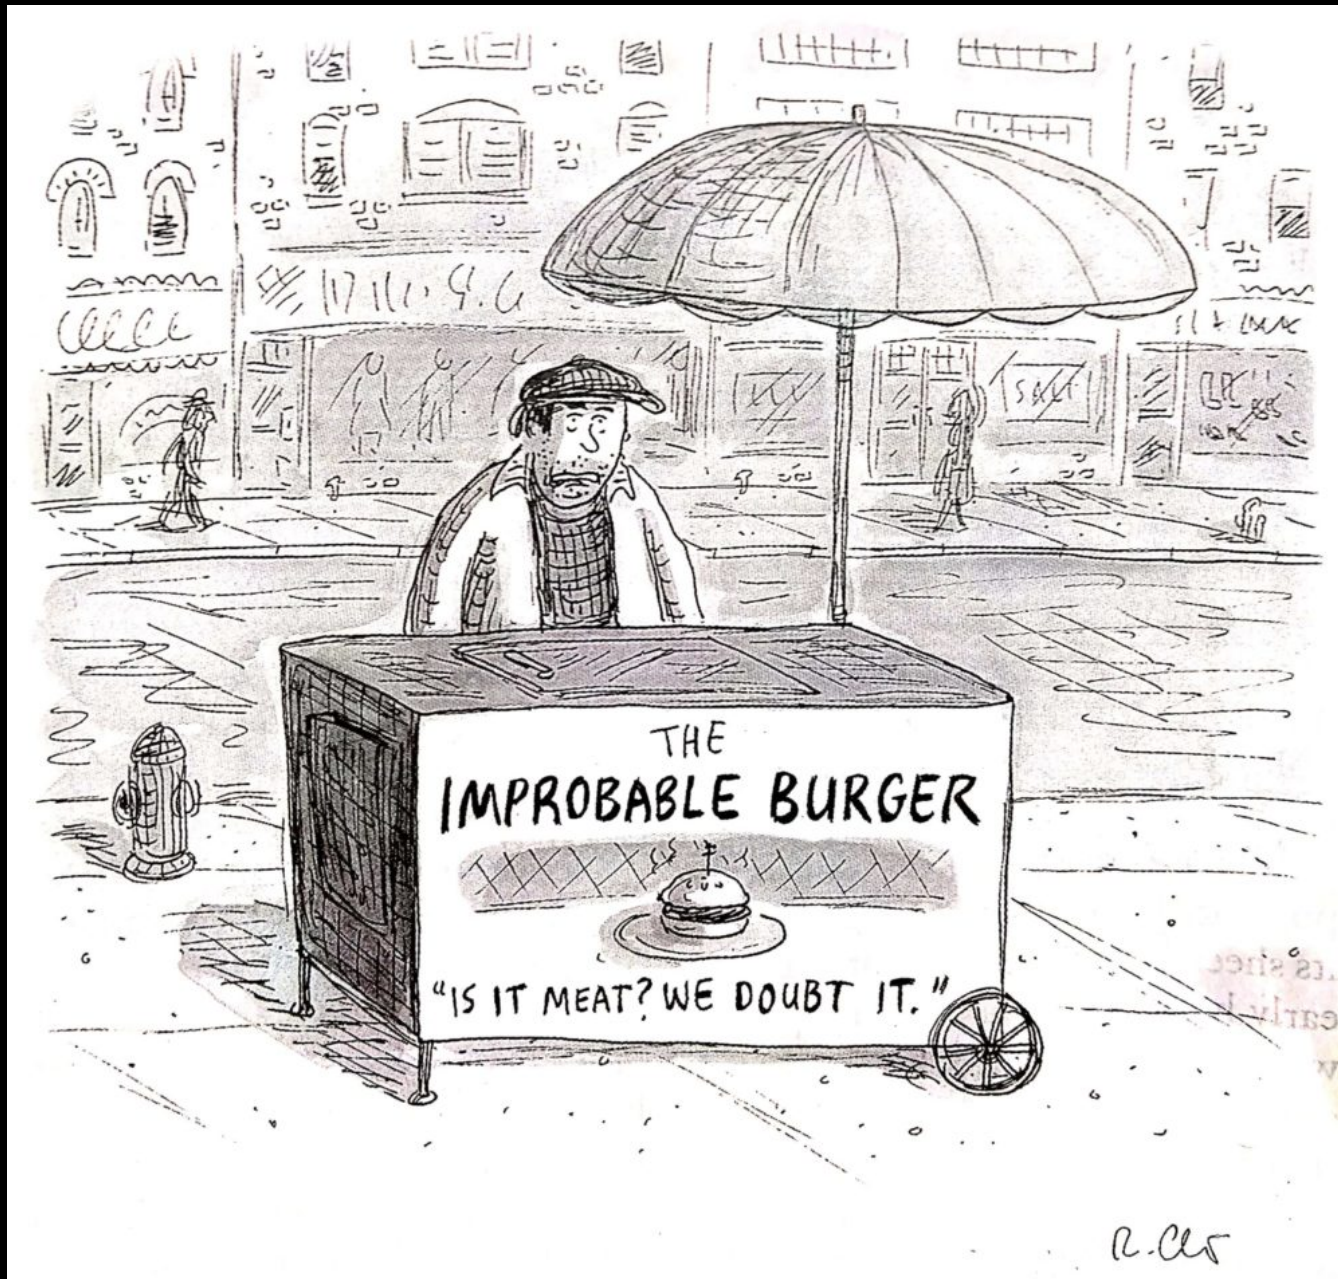 SALE
THE
IMPROBABLE BURGER
"IS IT MEAT? WE DOUBT IT."